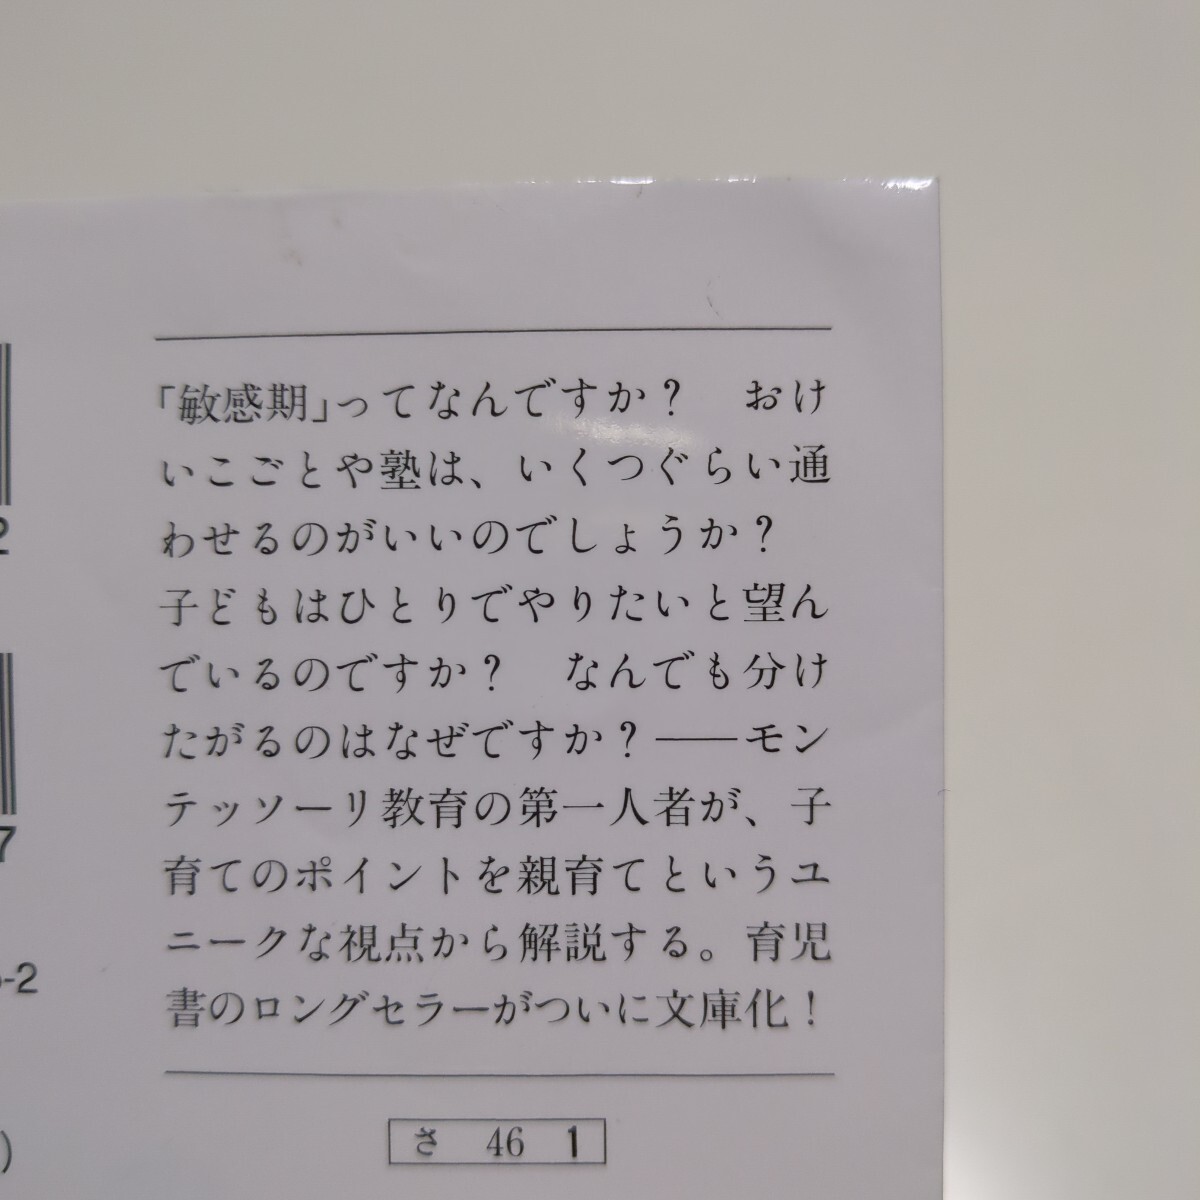 「敏感期」ってなんですか？　おけ
いこごとや塾は、いくつぐらい通
わせるのがいいのでしょうか？
子どもはひとりでやりたいと望ん
でいるのですか？　なんでも分け
たがるのはなぜですか？――モン
テッソーリ教育の第一人者が、子
育てのポイントを親育てというユ
ニークな視点から解説する。育児
書のロングセラーがついに文庫化！
さ 46 1
2
7
-2
)